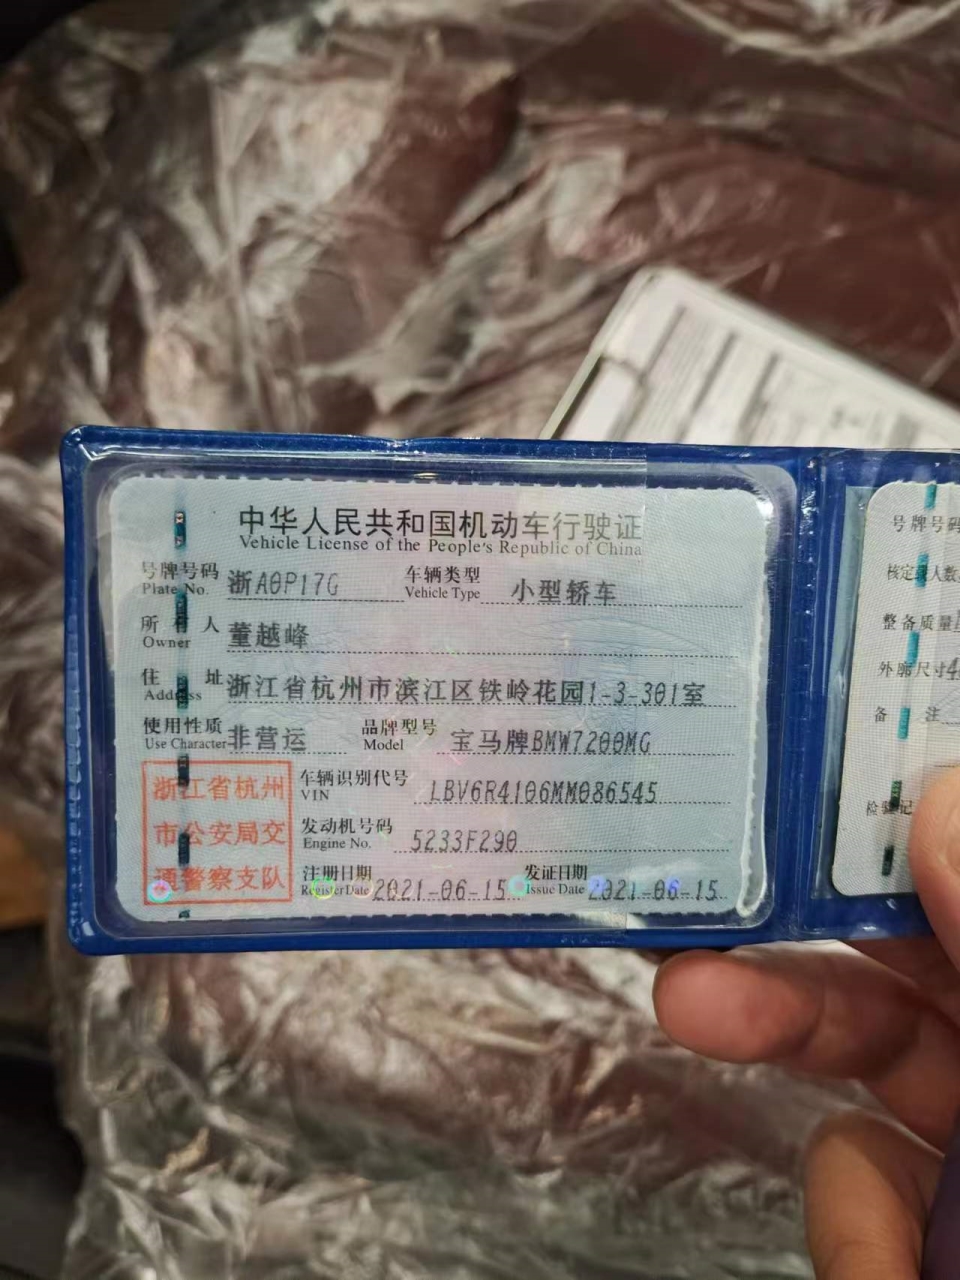 中华人民共和国机动车行驶证
Vehicle License of the People's Republic of China
号牌号码 浙A0P17G 车辆类型 小型轿车
Plate No. Vehicle Type
所有人 董越峰
Owner
住址 浙江省杭州市滨江区铁岭花园1-3-301室
Address
使用性质 非营运 品牌型号 宝马牌BMW7200MG
Use Character Model
浙江省杭州
市公安局交
通警察支队
车辆识别代号 LBV6R4106MM086545
VIN
发动机号码 5233F290
Engine No.
注册日期 2021-06-15 发证日期 2021-06-15
Register Date Issue Date
号牌号码
核定载人数
整备质量
外廓尺寸
备注
检验记